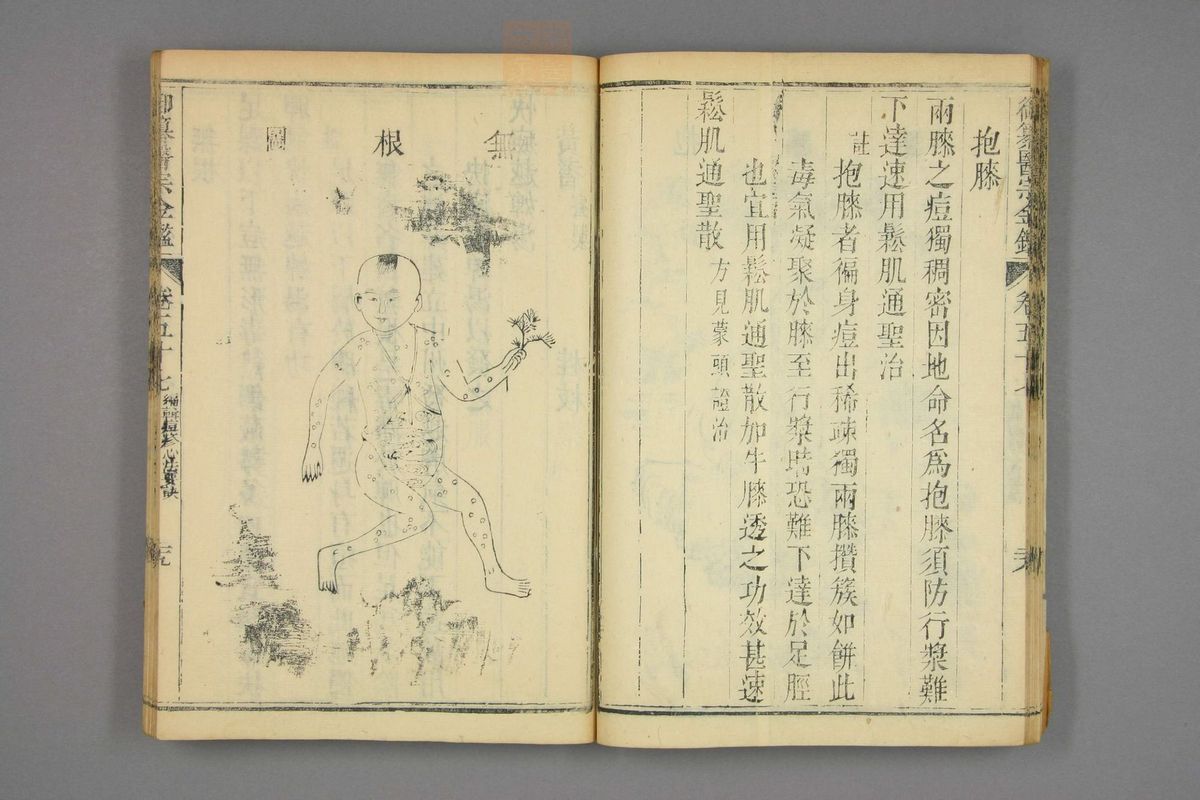 抱膝
兩膝之痘獨稠密因地命名爲抱膝須防行漿難
下達速用鬆肌通聖治
註
抱膝者徧身痘出稀疎獨兩膝攢簇如餅此
毒氣凝聚於膝至行漿時恐難下達於足脛
也宜用鬆肌通聖散加牛膝透之功效甚速
鬆肌通聖散 方見蒙頭證治
御纂醫宗金鑑 卷五十七
無根圖
御纂醫宗金鑑 卷五十七 編輯痘疹心法要訣